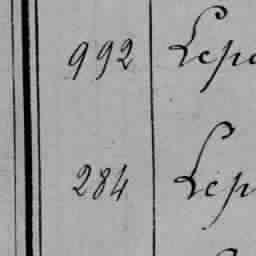 992 Lepa
284 Lep